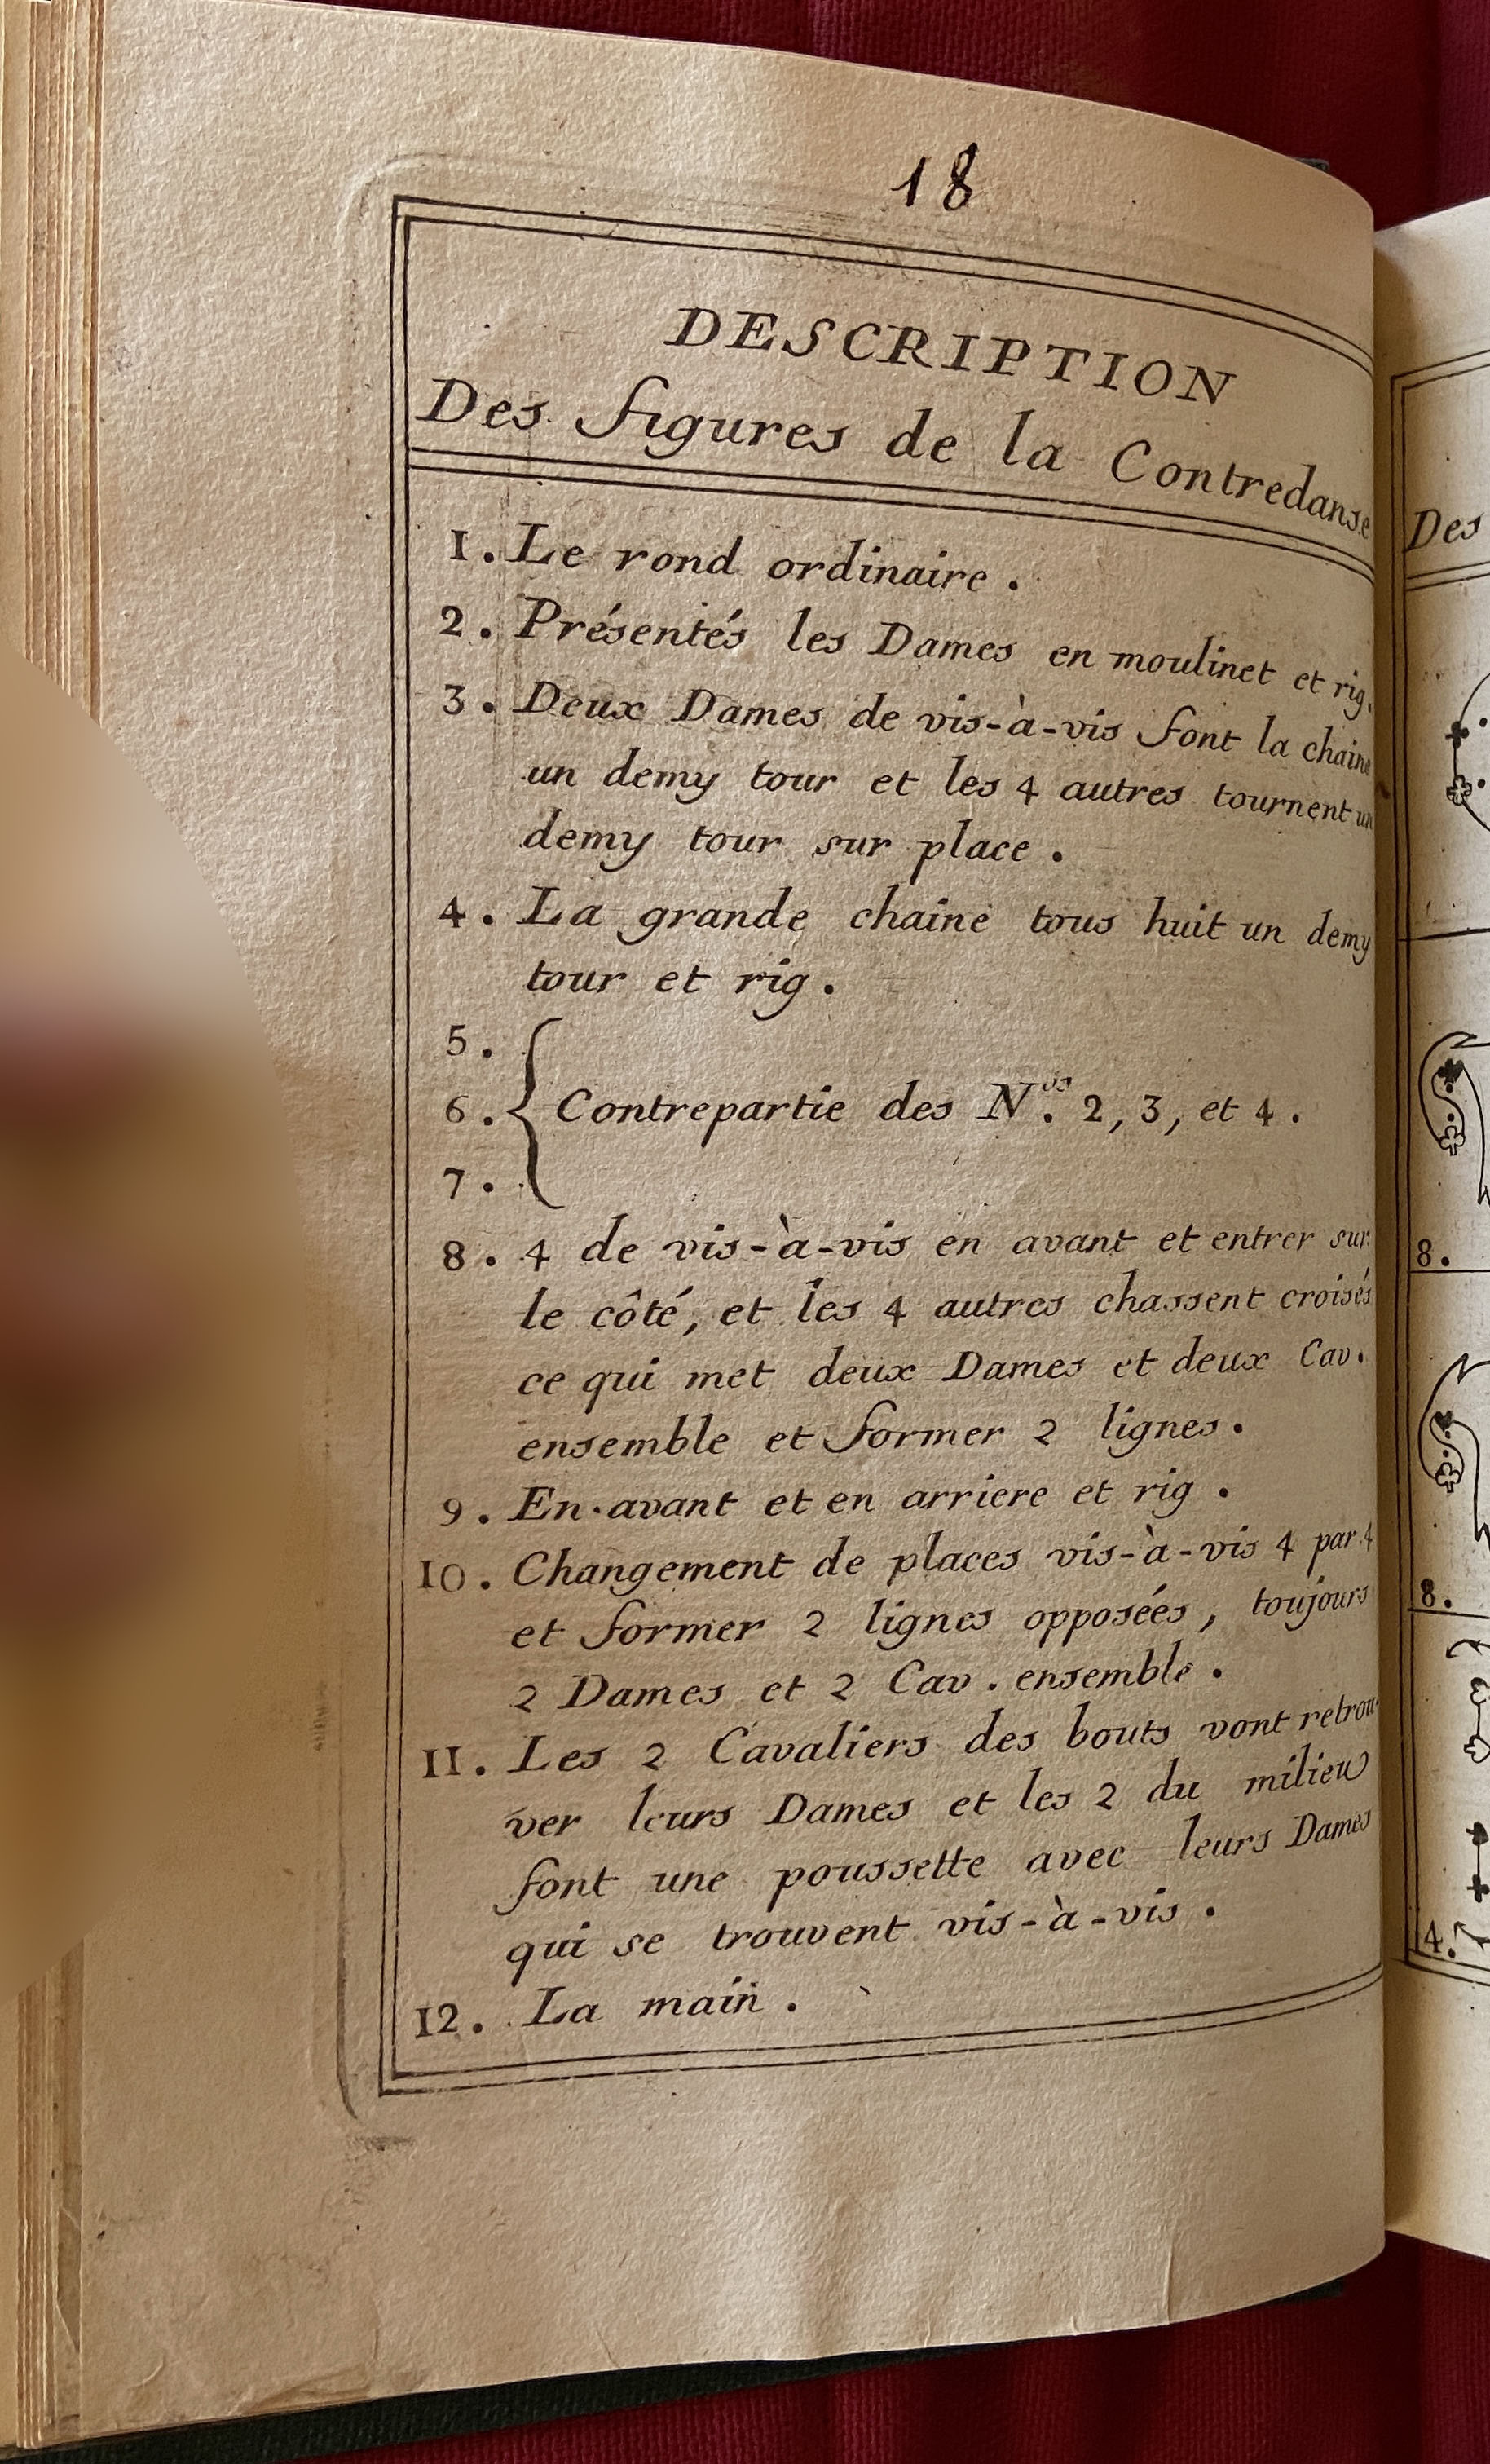 18
DESCRIPTION
Des figures de la Contredanse
1. Le rond ordinaire.
2. Présentés les Dames en moulinet et rig.
3. Deux Dames de vis-à-vis font la chaine
un demy tour et les 4 autres tournent un
demy tour sur place.
4. La grande chaine tous huit un demy
tour et rig.
5.
6. { Contrepartie des N.os 2, 3, et 4.
7.
8. 4 de vis-à-vis en avant et entrer sur
le côté, et les 4 autres chassent croisés
ce qui met deux Dames et deux Cav.
ensemble et former 2 lignes.
9. En avant et en arriere et rig.
10. Changement de places vis-à-vis 4 par 4
et former 2 lignes opposées, toujours
2 Dames et 2 Cav. ensemble.
11. Les 2 Cavaliers des bouts vont retrou-
ver leurs Dames et les 2 du milieu
font une poussette avec leurs Dames
qui se trouvent vis-à-vis.
12. La main.
Des
8.
8.
4.